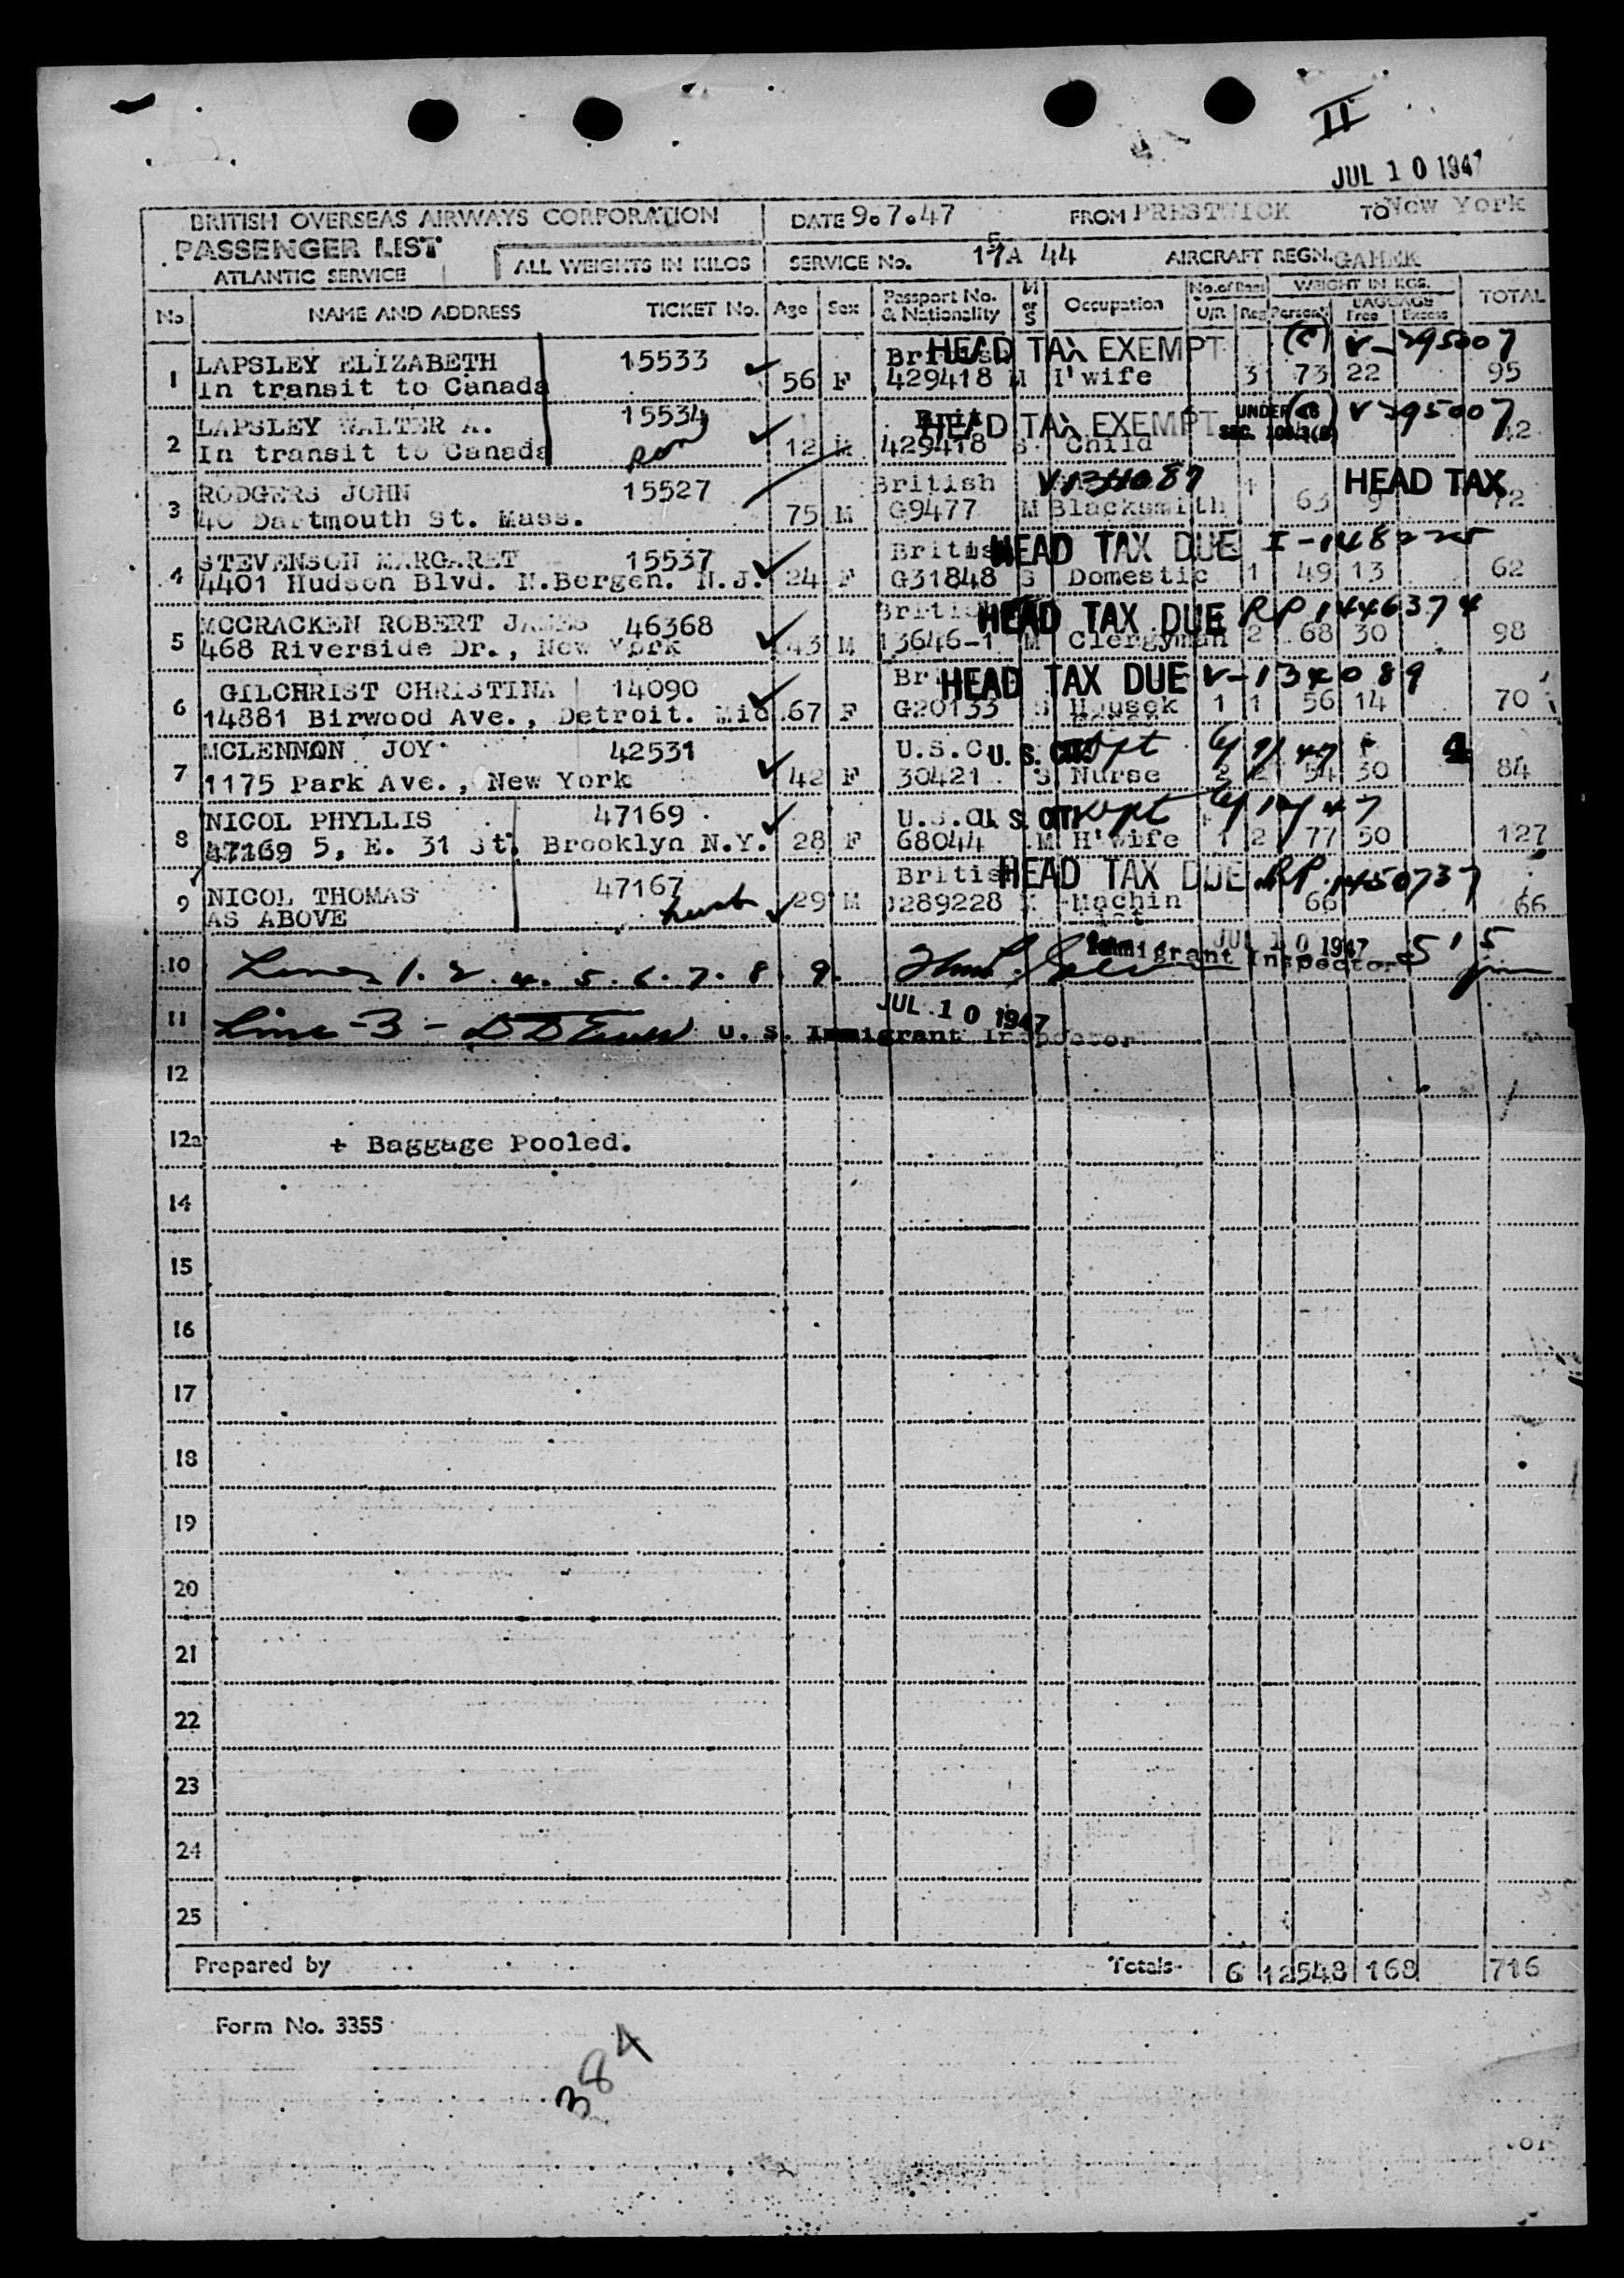 II
JUL 10 1947
BRITISH OVERSEAS AIRWAYS CORPORATION DATE 9.7.47 FROM PRESTWICK TO New York
PASSENGER LIST
ATLANTIC SERVICE ALL WEIGHTS IN KILOS SERVICE No. A 44 AIRCRAFT REGN. GAHEK
No NAME AND ADDRESS TICKET No. Age Sex Passport No. & Nationality M or S Occupation No. of Bags U/R Reg WEIGHT IN KGS. Personal BAGGAGE Free Excess TOTAL
LAPSLEY ELIZABETH 15533 British HEAD TAX EXEMPT (C) V-295007
1 In transit to Canada 56 F 429418 M H'wife 3 73 22 95
LAPSLEY WALTER A. 15534 Brit HEAD TAX EXEMPT UNDER 16 (C) V295007
2 In transit to Canada son 12 M 429418 S Child 42
RODGERS JOHN 15527 British V134087 1 HEAD TAX
3 40 Dartmouth St. Mass. 75 M G9477 M Blacksmith 63 9 72
STEVENSON MARGARET 15537 British HEAD TAX DUE I-148225
4 4401 Hudson Blvd. N.Bergen. N.J. 24 F G31848 S Domestic 1 49 13 62
MCCRACKEN ROBERT JAMES 46368 British HEAD TAX DUE RP 1446374
5 468 Riverside Dr., New York 43 M 13646-1 M Clergyman 2 68 30 98
GILCHRIST CHRISTINA 14090 Br HEAD TAX DUE V-134089
6 14881 Birwood Ave., Detroit. Mic 67 F G20133 S Housek 1 1 56 14 70
MCLENNON JOY 42531 U.S.C U. S. CIT
7 1175 Park Ave., New York 42 F 30421 S Nurse 2 2 54 30 84
NICOL PHYLLIS 47169 U.S.C U. S. CIT
8 47169 5, E. 31 St. Brooklyn N.Y. 28 F 68044 M H'wife 1 2 77 50 127
NICOL THOMAS 47167 British HEAD TAX DUE RP 1450737
9 AS ABOVE husb 29 M 289228 M Machinist 66 66
10 Lines 1. 2. 4. 5. 6. 7. 8. 9. Immigrant Inspector JUL 10 1947
11 Line -3- U. S. Immigrant Inspector JUL 10 1947
12
12a + Baggage Pooled.
14
15
16
17
18
19
20
21
22
23
24
25
Prepared by Totals 6 12 548 168 716
Form No. 3355
384